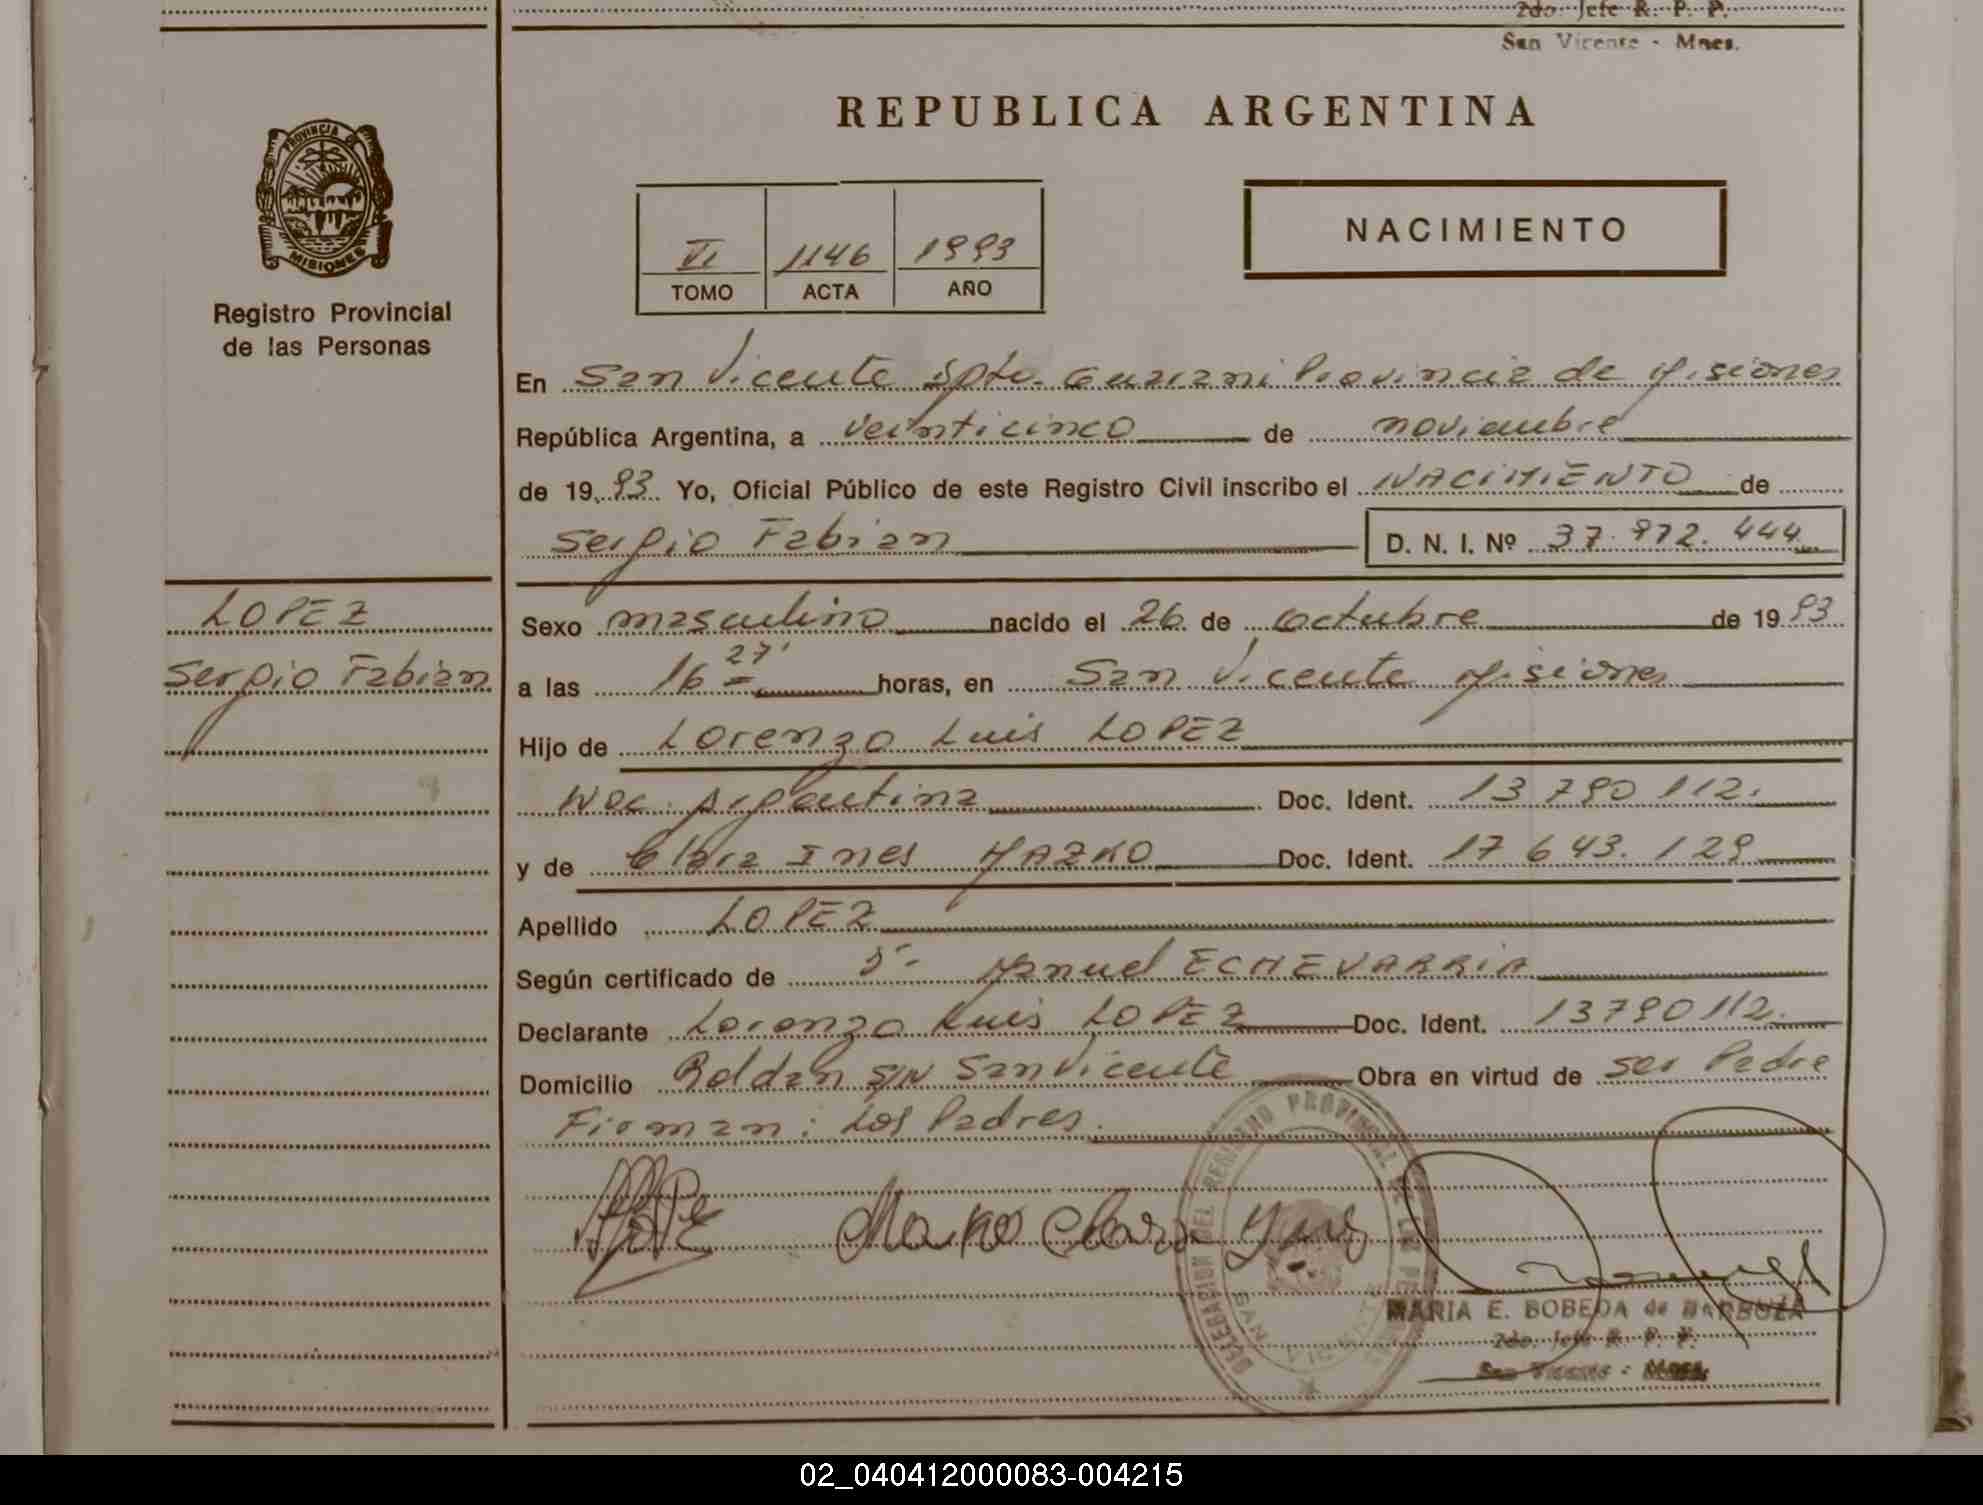 2do. Jefe R. P. P.
San Vicente - Mnes.
REPUBLICA ARGENTINA
PROVINCIA DE
MISIONES
Registro Provincial
de las Personas
VI 1146 1993
TOMO ACTA AÑO
NACIMIENTO
En San Vicente Dpto. Guarani Provincia de Misiones
República Argentina, a veinticinco de noviembre
de 1993 Yo, Oficial Público de este Registro Civil inscribo el NACIMIENTO de
Sergio Fabian D. N. I. Nº 37.972.444
LOPEZ
Sergio Fabian
Sexo masculino nacido el 26 de octubre de 1993
a las 16 27' horas, en San Vicente Misiones
Hijo de Lorenzo Luis LOPEZ
Nac. Argentina Doc. Ident. 13 790 112.
y de Clara Ines MAZKO Doc. Ident. 17 643. 129
Apellido LOPEZ
Según certificado de Dr. Manuel ECHEVARRIA
Declarante Lorenzo Luis LOPEZ Doc. Ident. 13790112.
Domicilio Roldan S/N San Vicente Obra en virtud de ser Padre
Firman: Los Padres.
Mazko Clara Ynes
DELEGACION DEL REGISTRO PROVINCIAL DE LAS PE
MARIA E. BOBEDA de BARBOZA
2do. Jefe R. P. P.
San Vicente - Mnes.
02_040412000083-004215